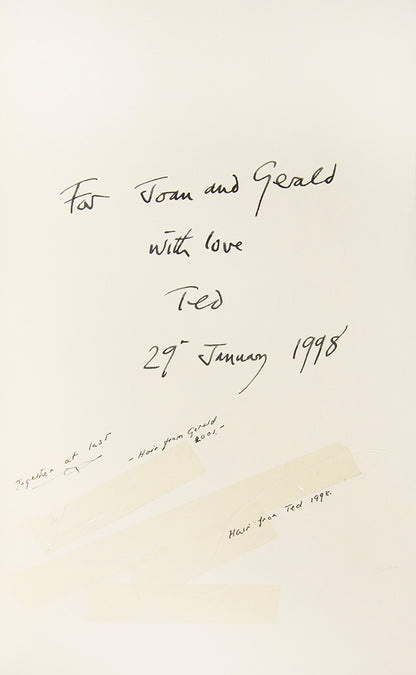 For Joan and Gerald
with love
Ted
29 January 1998
Together at last
- Hair from Gerald
2001. -
Hair from Ted 1998.